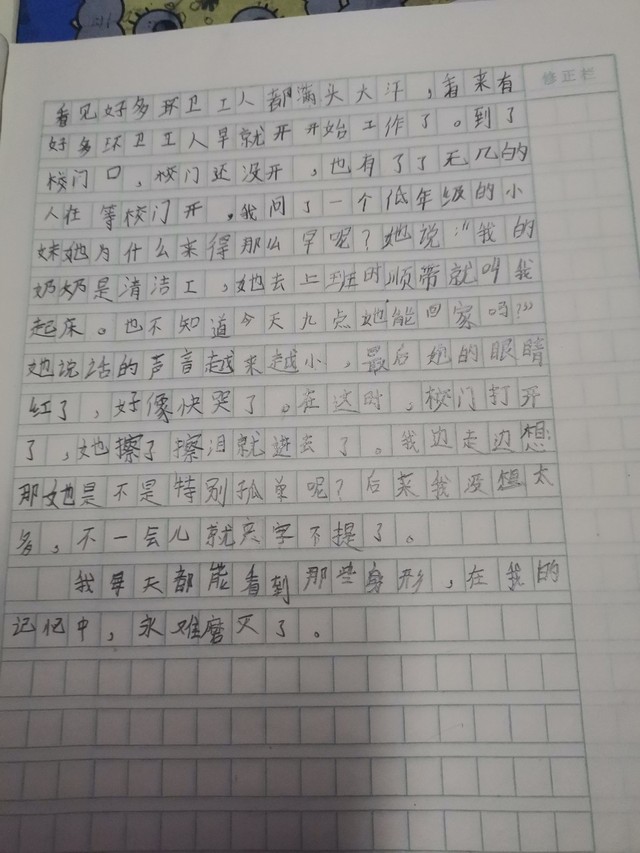 修正栏
看见好多环卫工人都满头大汗，看来有
好多环卫工人早就开开始工作了。到了
校门口，校门还没开，也有了了无几的
人在等校门开，我问了一个低年级的小
妹她为什么来得那么早呢？她说：“我的
奶奶是清洁工，她去上班时顺带就叫我
起床。也不知道今天九点她能回家吗？”
她说话的声音越来越小，最后她的眼睛
红了，好像快哭了。在这时，校门打开
了，她擦了擦泪就进去了。我边走边想：
那她是不是特别孤单呢？后菜我没想太
多，不一会儿就只字不提了。
我每天都能看到那些身形，在我的
记忆中，永难磨灭了。